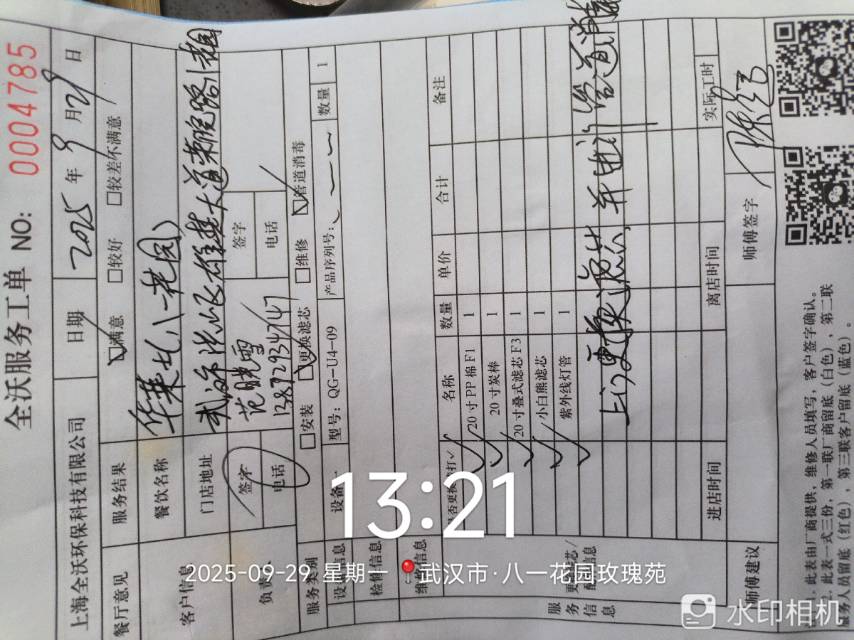 全沃服务工单 NO: 0004785
上海全沃环保科技有限公司 日期 2025 年 9 月 29 日
餐厅意见 服务结果 ☑满意 □较好 □较差不满意
客户信息 餐饮名称 华莱士八一花园
门店地址 武汉市洪山区雄楚大道
负责 签字 范晓雪 签字
电话 13872934747 电话
服务类别 □安装 ☑更换滤芯 □维修 ☑管道消毒
设备信息 设备一 型号: QG-U4-09 产品序列号: 数量 1
检修信息
维修信息
是否更换打✓ 名称 数量 单价 合计 备注
✓ 20 寸 PP 棉 F1 1
✓ 20 寸炭棒 1
✓ 20 寸叠式滤芯 F3 1
✓ 小白熊滤芯 1
✓ 紫外线灯管 1
服务信息
上门更换滤芯, 并进行管道消毒
进店时间 离店时间 实际工时
师傅建议 师傅签字
1、此表由厂商提供,维修人员填写,客户签字确认。
2、此表一式三份,第一联厂商留底(白色),第二联
服务人员留底(红色),第三联客户留底(蓝色)。
13:21
2025-09-29 星期一 武汉市·八一花园玫瑰苑
水印相机